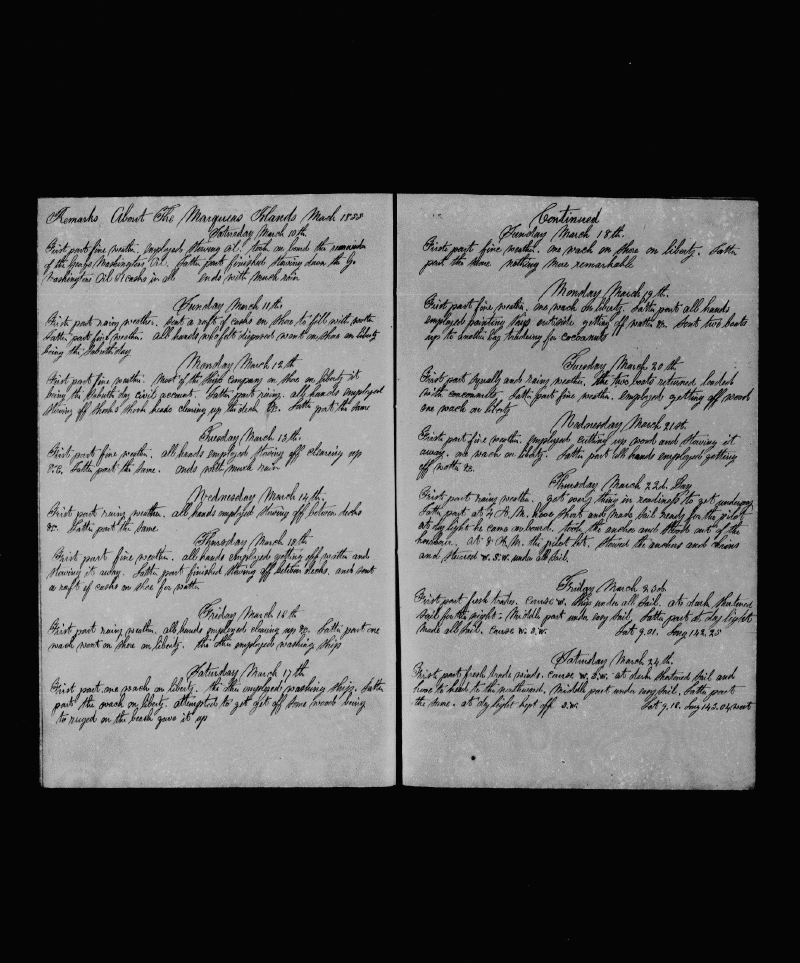 Remarks About The Marquesas Islands March 1855
Saturday March 10th
First part fine weather. employed stowing oil. took on board the remainder
of the George Washingtons Oil. Latter part finished stowing down the Ge
Washingtons Oil casks in all ends with much rain
Sunday March 11th.
First part rainy weather. sent a raft of casks on shore to fill with water
Latter part fine weather. all hands went on shore on liberty
being the Sabbath day
Monday March 12th
First part fine weather. Most of the ships company on shore on liberty it
being the Sabbath day civil account. Latter part rainy. all hands employed
stowing off heads clearing up the deck &c. Latter part the same
Tuesday March 13th.
First part fine weather. all hands employed stowing off clearing up
&c. Latter part the same. ends with much rain
Wednesday March 14th.
First part rainy weather. all hands employed stowing off between decks
&c. Latter part the same
Thursday March 15th.
First part fine weather. all hands employed getting off water and
stowing it away. Latter part finished stowing off between decks. and sent
a raft of casks on shore for water
Friday March 16th
First part rainy weather. all hands employed clearing up &c. Latter part one
wach went on shore on liberty. the other employed washing ship
Saturday March 17th
First part one wach on liberty. the other employed washing ship. Latter
part the wach on liberty. attempted to get off some wood being
to ruged on the beach gave it up
Continued
Sunday March 18th.
First part fine weather. one wach on shore on liberty. Latter
part the same nothing more remarkable
Monday March 19th.
First part fine weather. one wach on liberty. Latter part all hands
employed painting ship outside getting off water &c. Sent two boats
up to another bay trading for cocoanuts
Tuesday March 20th
First part squally and rainy weather. the two boats returned loaded
with cocoanuts. Latter part fine weather. employed getting off wood
one wach on liberty
Wednesday March 21st.
First part fine weather. employed cutting up wood and stowing it
away. one wach on liberty. Latter part all hands employed getting
off water &c.
Thursday March 22d. Day
First part rainy weather. got every thing in readiness to get underway
Latter part at 4 A.M. hove short and made sail ready for the pilot
at day light he came on board. took the anchor and stood out of the
harbour. at 8 A.M. the pilot left. stowed the anchors and chains
and steered W.S.W. under all sail.
Friday March 23d.
First part fresh trades. course W. Ship under all sail. at dark shortened
sail for the night - Middle part under easy sail. Latter part at day light
made all sail. course W.S.W. Lat 9.01. Long 142.25
Saturday March 24th.
First part fresh trade winds. course W.S.W. at dark shortened sail and
hove to head to the northward. Middle part under easy sail. Latter part
the same. at day light kept off S.W. Lat 9.18. Long 143.04 West